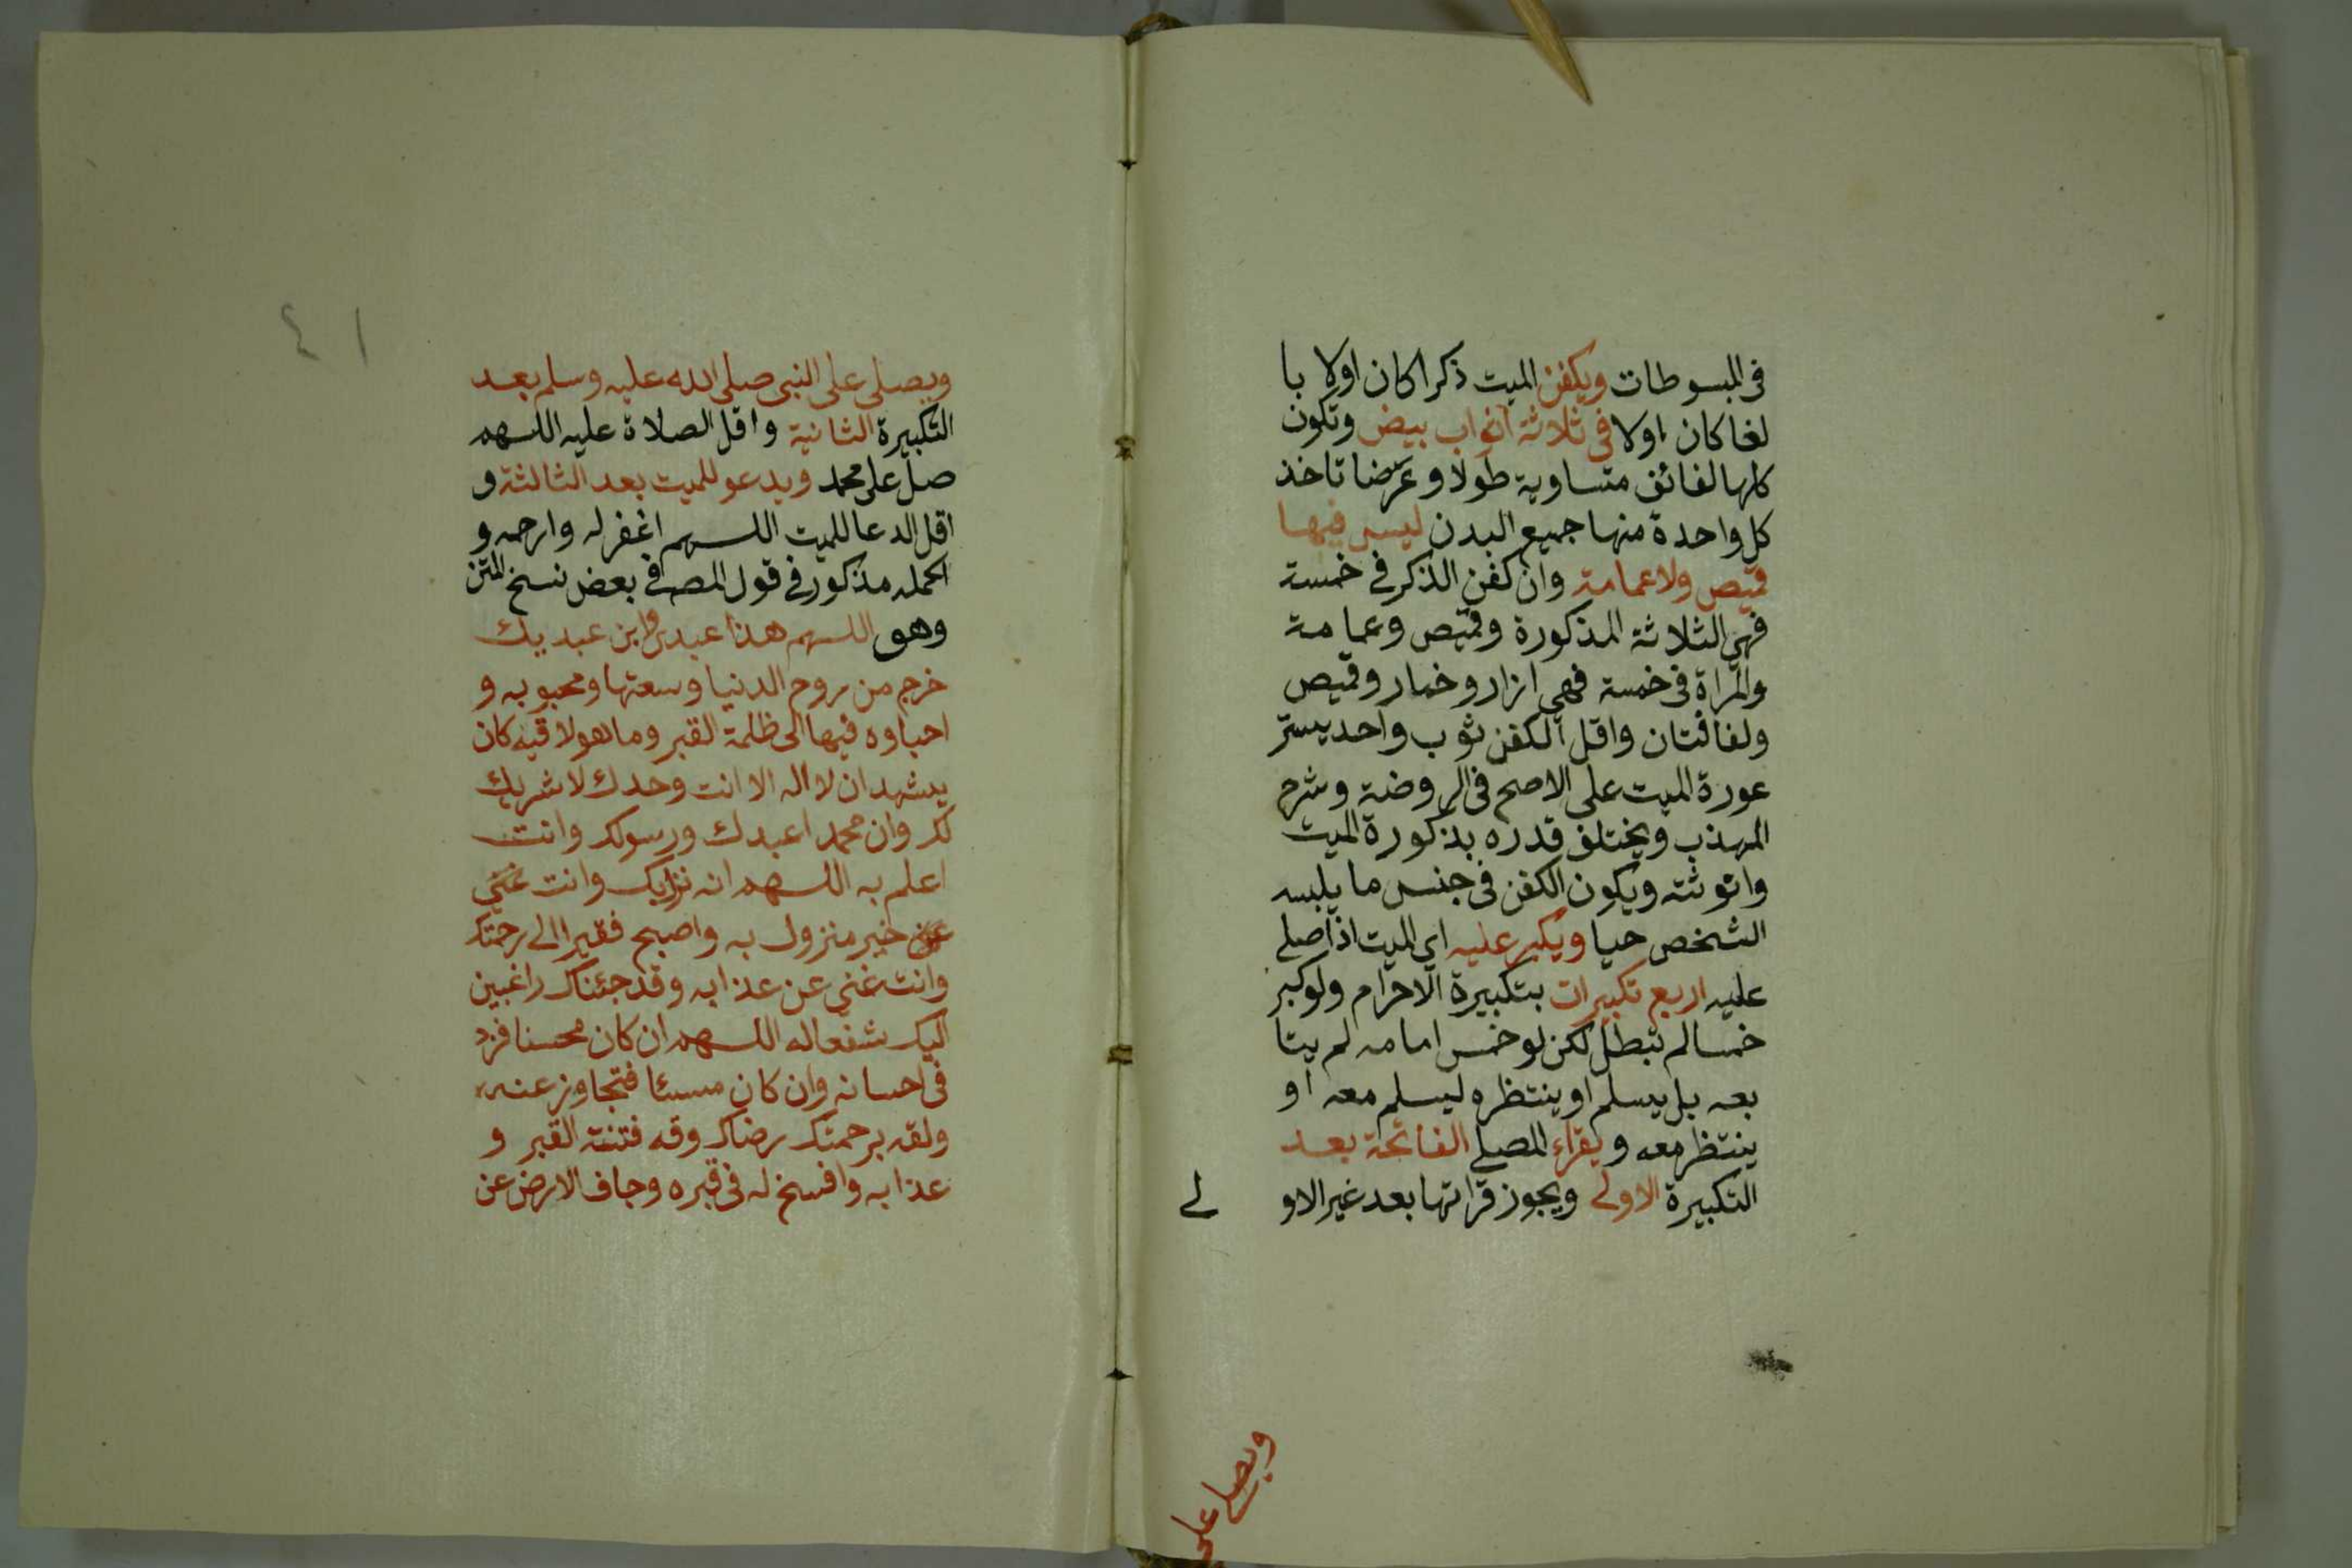 في المبسوطات ويكفن الميت ذكرا كان اولا با
لغا كان اولا في ثلاثة اثواب بيض وتكون
كلها لفائف متساوية طولا وعرضا تاخذ
كل واحدة منها جميع البدن ليس فيها
قميص ولا عمامة وان كفن الذكر في خمسة
فهي الثلاثة المذكورة وقميص وعمامة
والمراة في خمسة فهي ازار وخمار وقميص
ولفافتان واقل الكفن ثوب واحد يستر
عورة الميت على الاصح في الروضة وشرح
المهذب ويختلف قدره بذكورة الميت
وانوثته ويكون الكفن في جنس ما يلبسه
الشخص حيا ويكبر عليه اي الميت اذا صلي
عليه اربع تكبيرات بتكبيرة الاحرام ولو كبر
خمسا لم تبطل لكن لو خمس امامه لم يتا
بعه بل يسلم او ينتظره ليسلم معه او
ينتظر معه ويقراء المصلي الفاتحة بعد
التكبيرة الاولى ويجوز قراتها بعد غير الاو لى
ويصلي على
٤١
ويصلي على النبي صلى الله عليه وسلم بعد
التكبيرة الثانية واقل الصلاة عليه اللهم
صل على محمد ويدعو للميت بعد الثالثة و
اقل الدعا للميت اللهم اغفر له وارحمه و
اكمله مذكور في قول المصـ في بعض نسخ المتن
وهو اللهم هذا عبدك وابن عبديك
خرج من روح الدنيا وسعتها ومحبوبه و
احباوه فيها الى ظلمة القبر وما هو لاقيه كان
يشهد ان لا اله الا انت وحدك لا شريك
لك وان محمدا عبدك ورسولك وانت
اعلم به اللهم انه نزل بك وانت غني
عن خير منزول به واصبح فقيرا الى رحمتك
وانت غني عن عذابه وقد جئناك راغبين
اليك شفعاله اللهم ان كان محسنا فزد
في احسانه وان كان مسئا فتجاوز عنه
ولقه برحمتك رضاك وقه فتنة القبر و
عذابه وافسخ له في قبره وجاف الارض عن